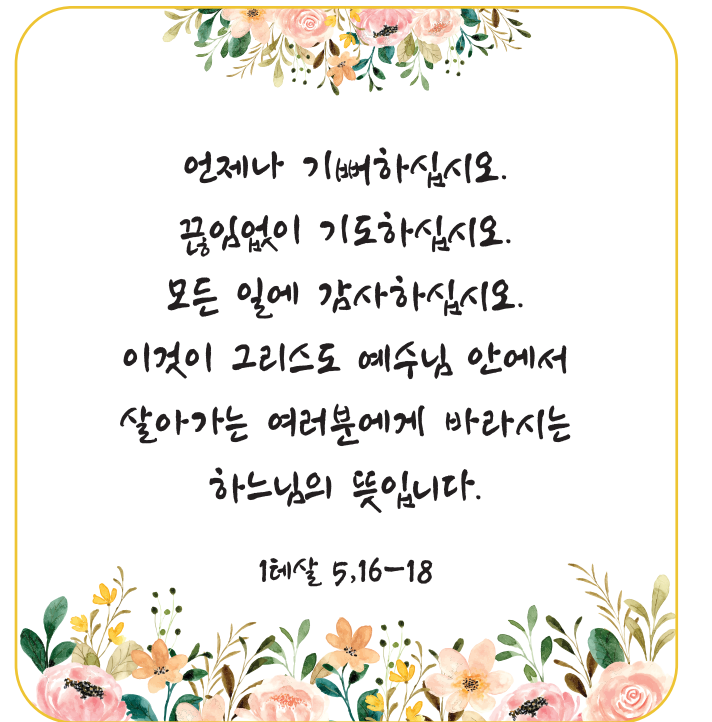 언제나 기뻐하십시오.
끊임없이 기도하십시오.
모든 일에 감사하십시오.
이것이 그리스도 예수님 안에서
살아가는 여러분에게 바라시는
하느님의 뜻입니다.
1테살 5,16-18